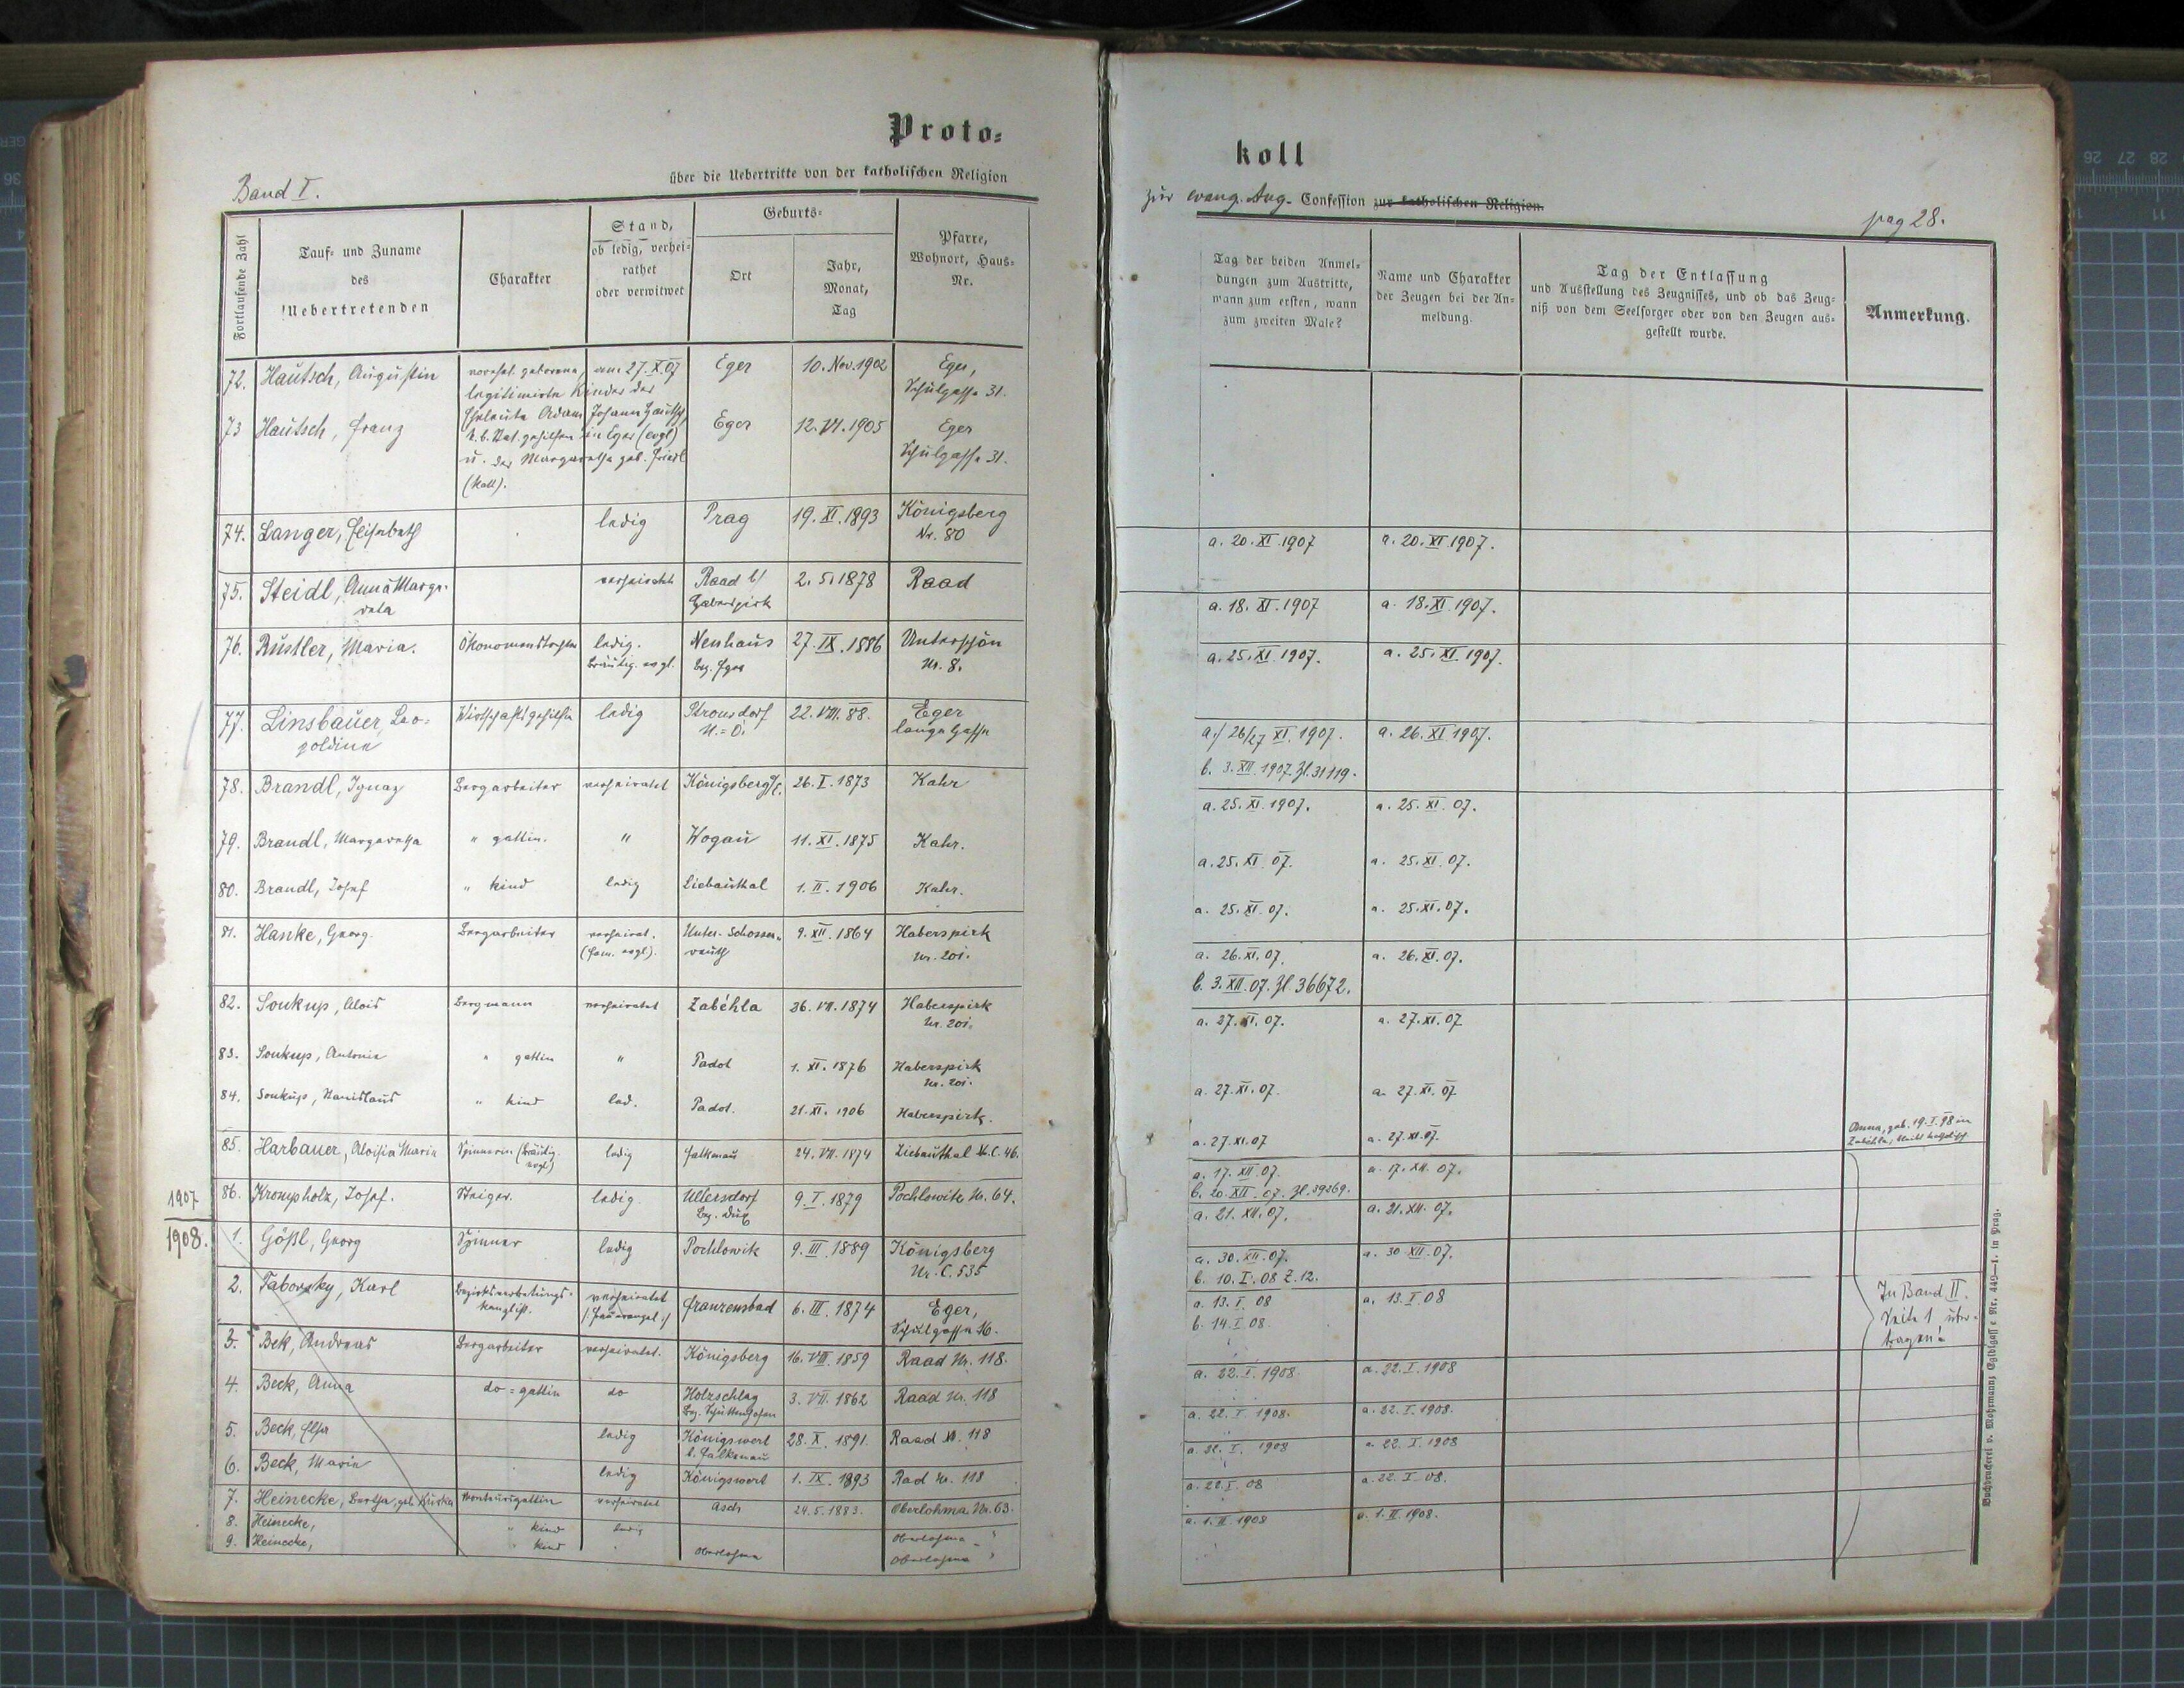 Proto=
über die Uebertritte von der katholischen Religion
Band I.
Fortlaufende Zahl
Tauf= und Zuname
des
Uebertretenden
Charakter
Stand,
ob ledig, verhei=
rathet
oder verwitwet
Geburts=
Ort
Jahr,
Monat,
Tag
Pfarre,
Wohnort, Haus=
Nr.
72. Hautsch, Augustin vorehel. geborene, am 27. X. 07 Eger 10. Nov. 1902 Eger,
legitimirte Kinder der Schulgasse 31.
73 Hautsch, Franz Eheleute Adam Johann Hautsch, Eger 12. VI. 1905 Eger
in Eger (evgl) Schulgasse 31.
u. der Margaretha geb. Friedl
(kath).
74. Langer, Elisabeth ledig Prag 19. XI. 1893 Königsberg
Nr. 80
75. Steidl, Anna Marga- verheirathet Raad b/ 2. 5. 1878 Raad
reta Haberspirk
76. Rustler, Maria. Ökonomenstochter ledig. Neuhaus 27. IX. 1886 Unterschön
Bräutig. evgl. Bez. Eger Nr. 8.
77. Linsbauer, Leo= Wirtschaftsgehilfin ledig Stronsdorf 22. VIII. 88. Eger
poldine N.=Ö. lange Gasse
78. Brandl, Ignaz Bergarbeiter verheiratet Königsberg a/E. 26. I. 1873 Kahr
79. Brandl, Margaretha " gattin. " Wogau 11. XI. 1875 Kahr.
80. Brandl, Josef " kind ledig Liebauthal 1. II. 1906 Kahr.
81. Hanke, Georg. Bergarbeiter verheirat. Unter-Schossen- 9. XII. 1864 Haberspirk
(Fam. evgl). reuth Nr. 201.
82. Soukup, Alois Bergmann verheiratet Zaběhla 26. VII. 1874 Haberspirk
Nr. 201.
83. Soukup, Antonie " gattin " Padol 1. XI. 1876 Haberspirk
Nr. 201.
84. Soukup, Stanislaus " kind led. Padol. 21. XI. 1906 Haberspirk.
85. Harbauer, Aloisia Maria Spinnerin (Bräutig. ledig Falkenau 24. VII. 1874 Liebauthal N.C. 46.
evgl)
1907 86. Krompholz, Josef. Steiger. ledig. Ullersdorf 9. I. 1879 Pochlowitz Nr. 64.
Bez. Dux
1908. 1. Gößl, Georg Spinner ledig Pochlowitz 9. III. 1889 Königsberg
Nr. C. 535
2. Taborsky, Karl Bezirksvertretungs- verheiratet Franzensbad 6. III. 1874 Eger,
kanzlist. /: Frau evangel. :/ Schulgasse 16.
3. Bek, Andreas Bergarbeiter verheiratet. Königsberg 16. VIII. 1859 Raad Nr. 118.
4. Beck, Anna do = gattin do Holzschlag 3. VII. 1862 Raad Nr. 118
Bez. Schüttenhofen
5. Beck, Elsa ledig Königswert 28. X. 1891. Raad Nr. 118
b. Falkenau
6. Beck, Marie ledig Königswert 1. IX. 1893 Rad Nr. 118
7. Heinecke, Bertha, geb. Monteursgattin verheiratet Asch 24. 5. 1883. Oberlohma Nr. 63.
8. Heinecke, " kind ledig Oberlohma "
9. Heinecke, " kind Oberlohma Oberlohma "
koll
zur evang. Aug. Confession zur katholischen Religion.
pag 28.
Tag der beiden Anmel=
dungen zum Austritte,
wann zum ersten, wann
zum zweiten Male?
Name und Charakter
der Zeugen bei der An=
meldung.
Tag der Entlassung
und Ausstellung des Zeugnisses, und ob das Zeug=
niß von dem Seelsorger oder von den Zeugen aus=
gestellt wurde.
Anmerkung.
a. 20. XI. 1907 a. 20. XI. 1907.
a. 18. XI. 1907 a. 18. XI. 1907.
a. 25. XI. 1907. a. 25. XI. 1907.
a./ 26/27 XI. 1907. a. 26. XI 1907.
b. 3. XII. 1907. Zl. 31119.
a. 25. XI. 1907. a. 25. XI. 07.
a. 25. XI. 07. a. 25. XI. 07.
a. 25. XI. 07. a. 25. XI. 07.
a. 26. XI. 07. a. 26. XI. 07.
b. 3. XII. 07. Zl. 36672.
a. 27. XI. 07. a. 27. XI. 07
a. 27. XI. 07. a. 27. XI. 07
Anna, geb. 19. I. 98 in
a. 27. XI. 07 a. 27. XI. 07. Zaběhla, bleibt katholisch
a. 17. XII. 07. a. 17. XII. 07.
b. 20. XII. 07. Zl. 39269.
a. 21. XII. 07. a. 21. XII. 07.
a. 30. XII. 07. a. 30 XII. 07.
b. 10. I. 08 Z. 12.
a. 13. I. 08 a. 13. I. 08
b. 14. I. 08.
In Band II.
Seite 1 über-
tragen!
a. 22. I. 1908. a. 22. I. 1908
a. 22. I. 1908. a. 22. I. 1908.
a. 22. I. 1908 a. 22. I. 1908
a. 22. I. 08 a. 22. I. 08.
a. 1. II. 1908 a. 1. II. 1908.
Buchdruckerei v. Mohrmanns Egidigasse Nr. 449—1. in Prag.